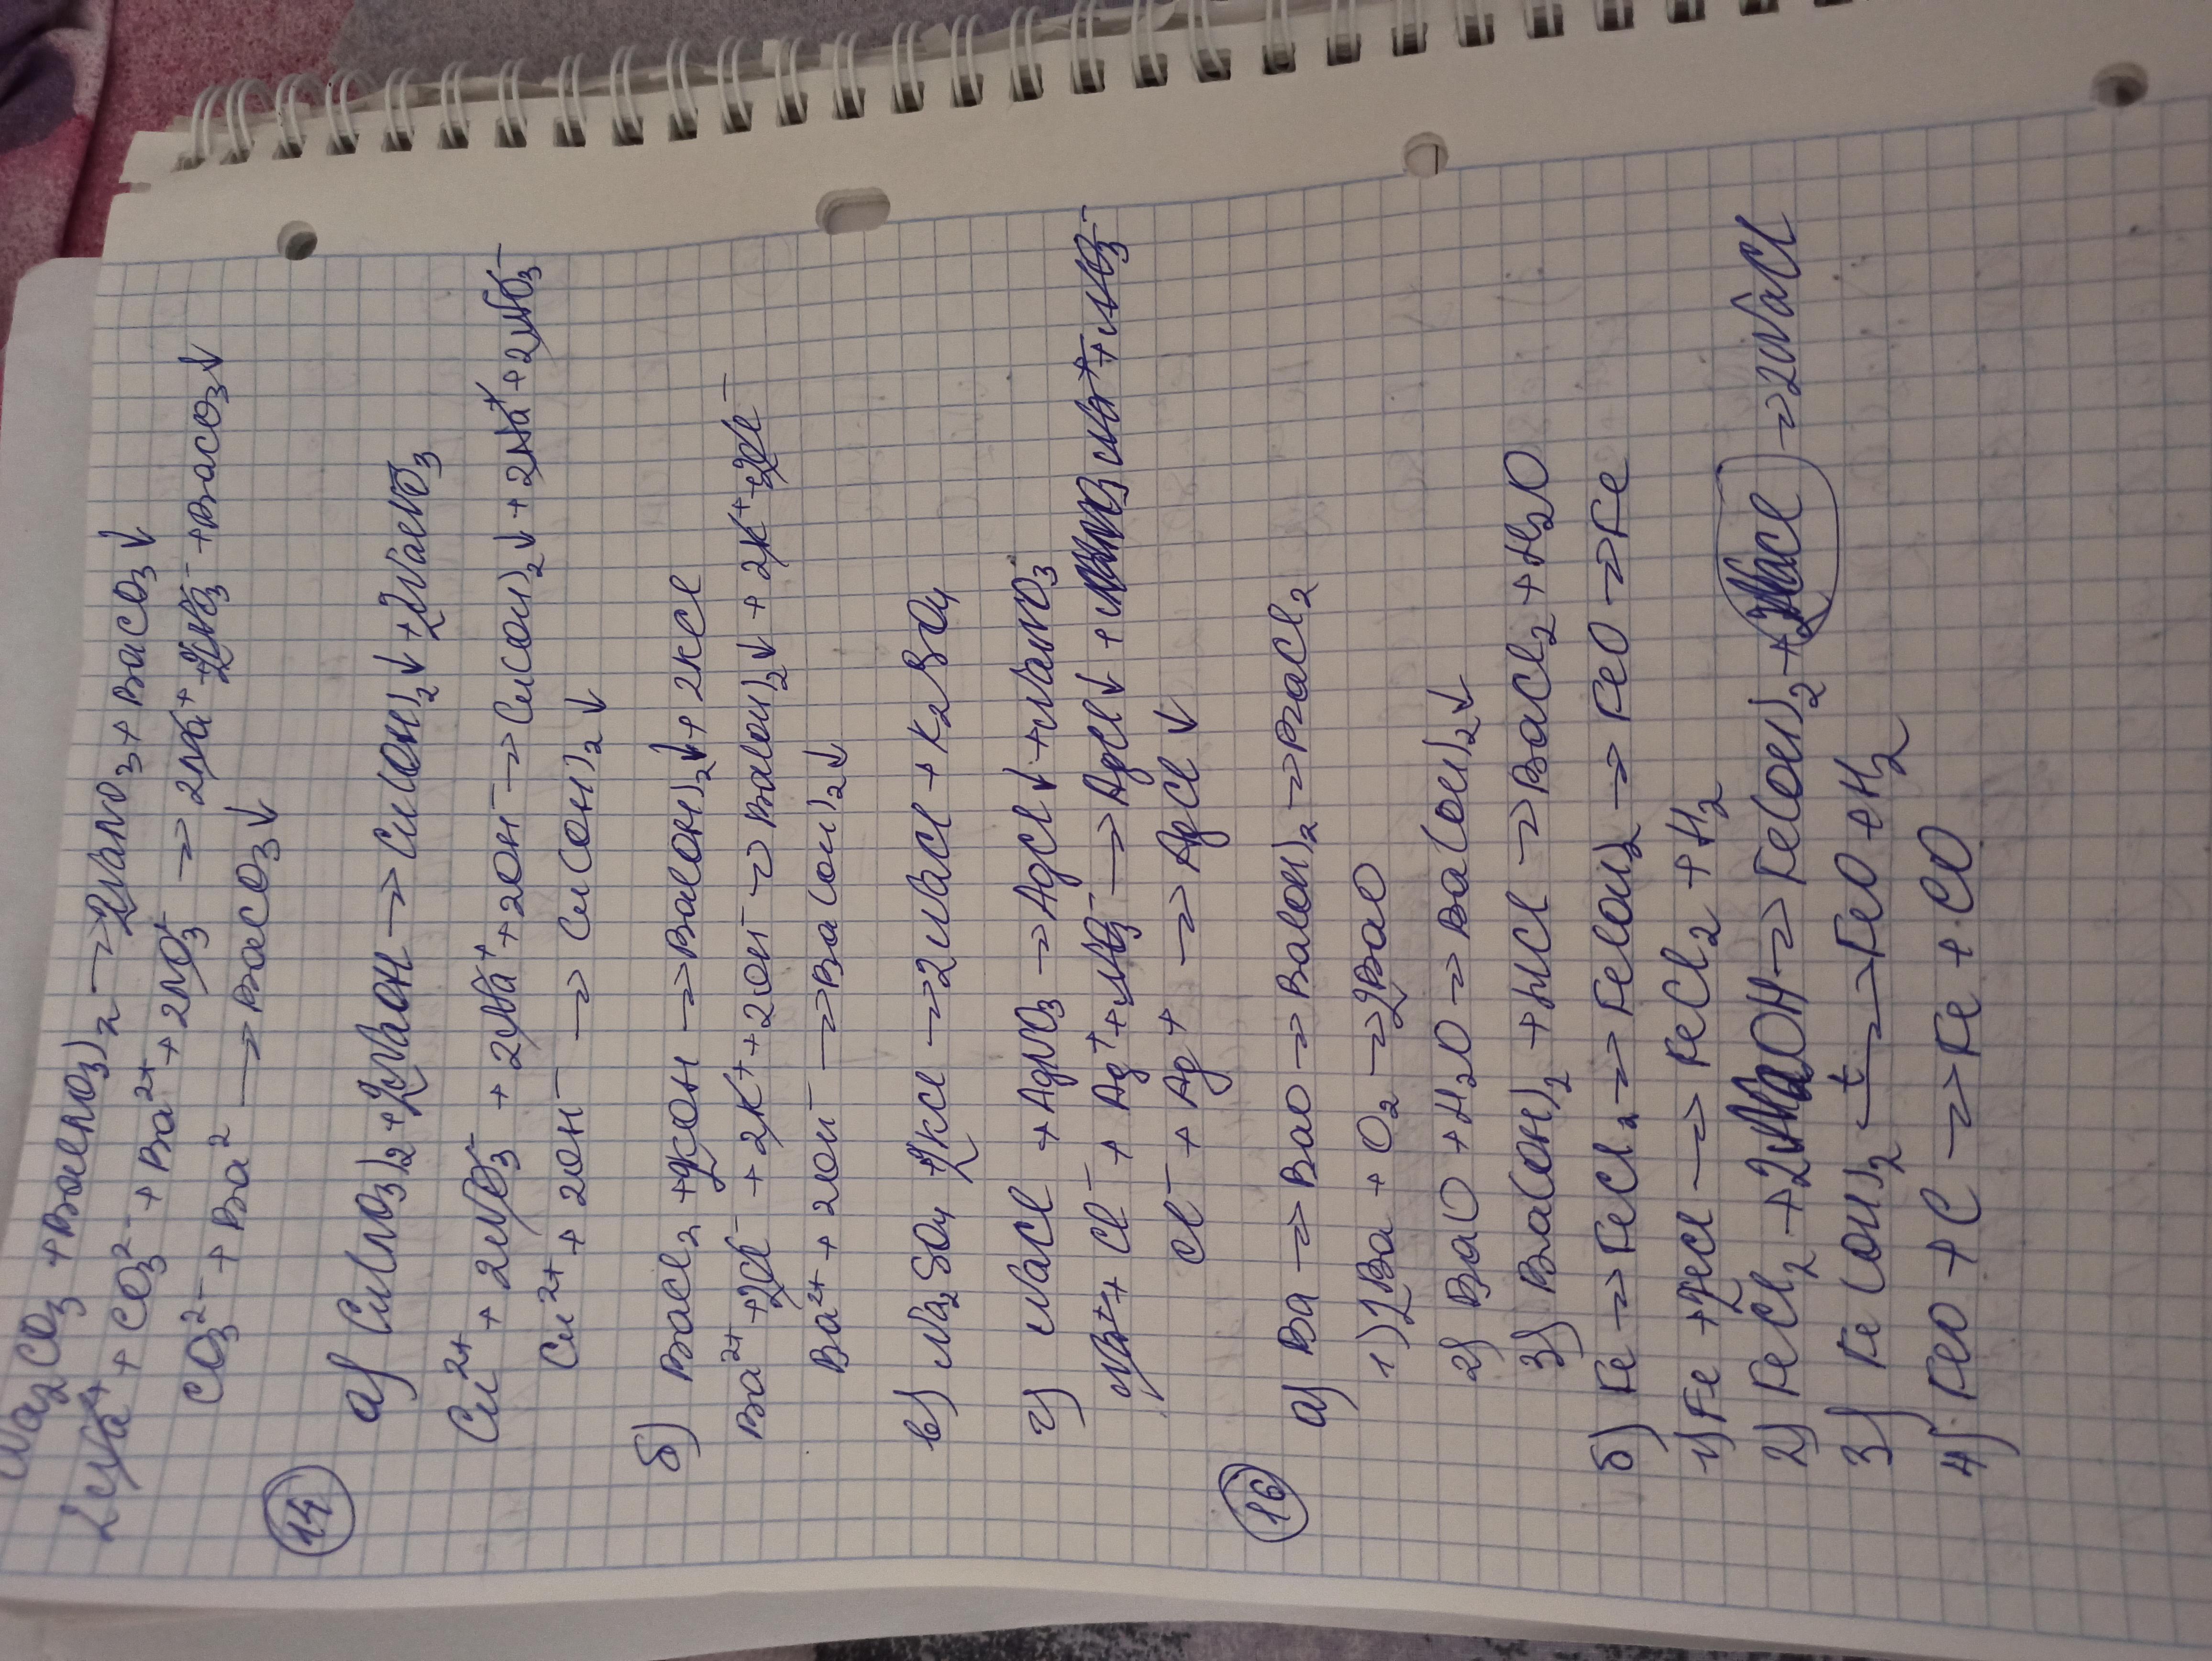 Na₂CO₃ + Ba(NO₃)₂ → 2NaNO₃ + BaCO₃↓
2Na⁺ + CO₃²⁻ + Ba²⁺ + 2NO₃⁻ → 2Na⁺ + 2NO₃⁻ + BaCO₃↓
CO₃²⁻ + Ba² → BaCO₃↓
14
а) Cu(NO₃)₂ + 2NaOH → Cu(OH)₂↓ + 2NaNO₃
Cu²⁺ + 2NO₃⁻ + 2Na⁺ + 2OH⁻ → Cu(OH)₂↓ + 2Na⁺ + 2NO₃⁻
Cu²⁺ + 2OH⁻ → Cu(OH)₂↓
б) BaCl₂ + 2KOH → Ba(OH)₂↓ + 2KCl
Ba²⁺ + 2Cl⁻ + 2K⁺ + 2OH⁻ → Ba(OH)₂↓ + 2K⁺ + 2Cl⁻
Ba²⁺ + 2OH⁻ → Ba(OH)₂↓
в) Na₂SO₄ + 2KCl → 2NaCl + K₂SO₄
г) NaCl + AgNO₃ → AgCl↓ + NaNO₃
Na⁺ + Cl⁻ + Ag⁺ + NO₃⁻ → AgCl↓ + Na⁺ + NO₃⁻
Cl⁻ + Ag⁺ → AgCl↓
16
а) Ba → BaO → Ba(OH)₂ → BaCl₂
1) 2Ba + O₂ → 2BaO
2) BaO + H₂O → Ba(OH)₂↓
3) Ba(OH)₂ + HCl → BaCl₂ + H₂O
б) Fe → FeCl₂ → Fe(OH)₂ → FeO → Fe
1) Fe + 2HCl → FeCl₂ + H₂
2) FeCl₂ + 2NaOH → Fe(OH)₂ + 2NaCl → 2NaCl
3) Fe(OH)₂ t→ FeO + H₂
4) FeO + C → Fe + CO